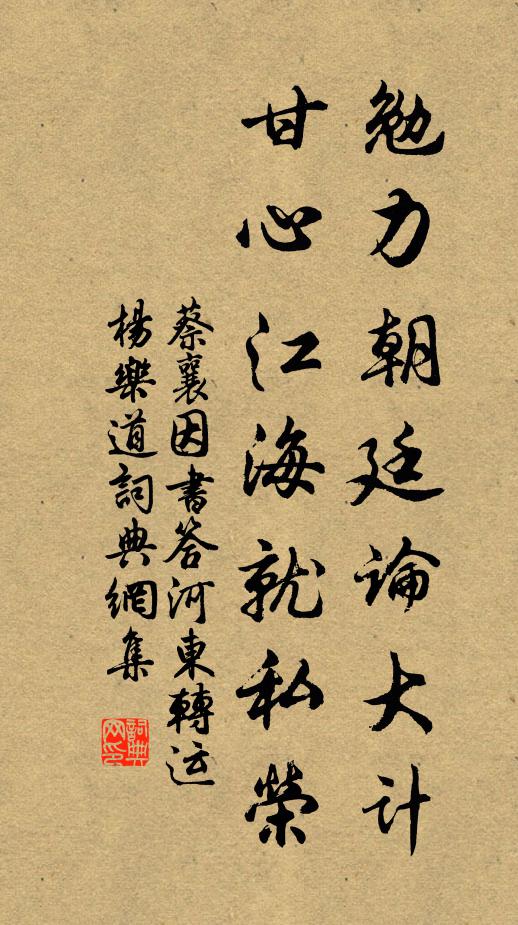 勉力朝廷論大计
甘心江海就私榮
蔡襄因書答河東轉运
楊樂道詞典網集
詞典网印